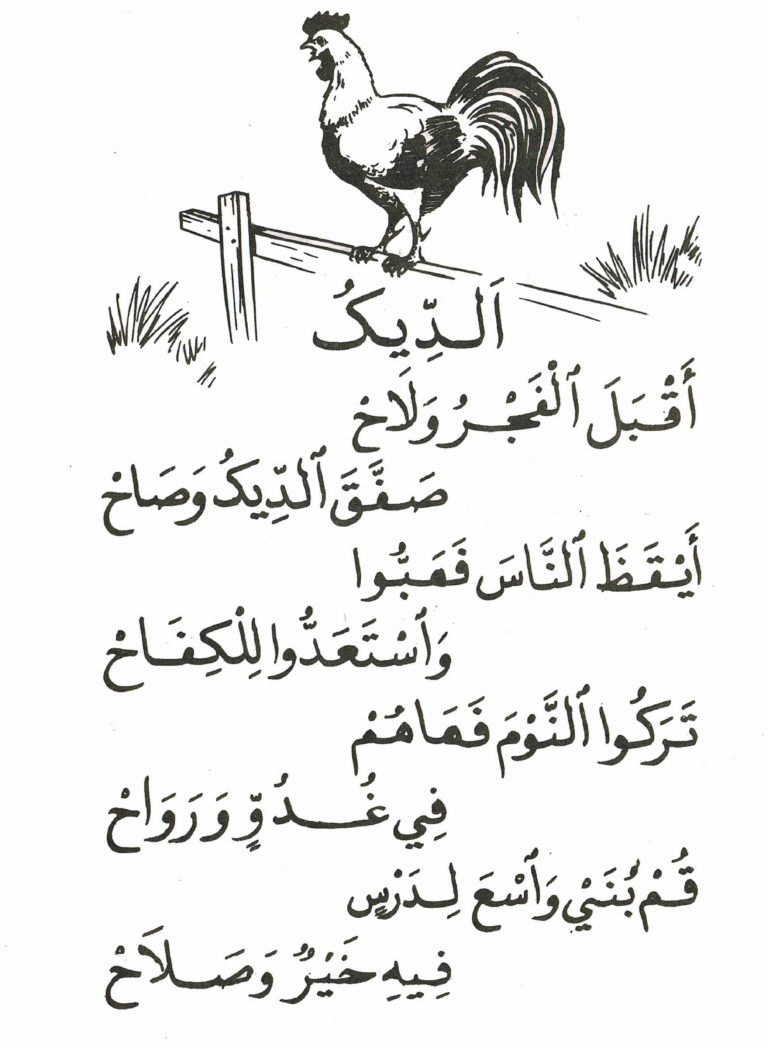 اَلدِّيكُ
أَقْبَلَ ٱلْفَجْرُ وَلَاحْ
صَفَّقَ ٱلدِّيكُ وَصَاحْ
أَيْقَظَ ٱلنَّاسَ فَهَبُّوا
وَٱسْتَعَدُّوا لِلْكِفَاحْ
تَرَكُوا ٱلنَّوْمَ فَهَا هُمْ
فِي غُدُوٍّ وَرَوَاحْ
قُمْ بُنَيَّ وَٱسْعَ لِدَرْسٍ
فِيهِ خَيْرٌ وَصَلَاحْ